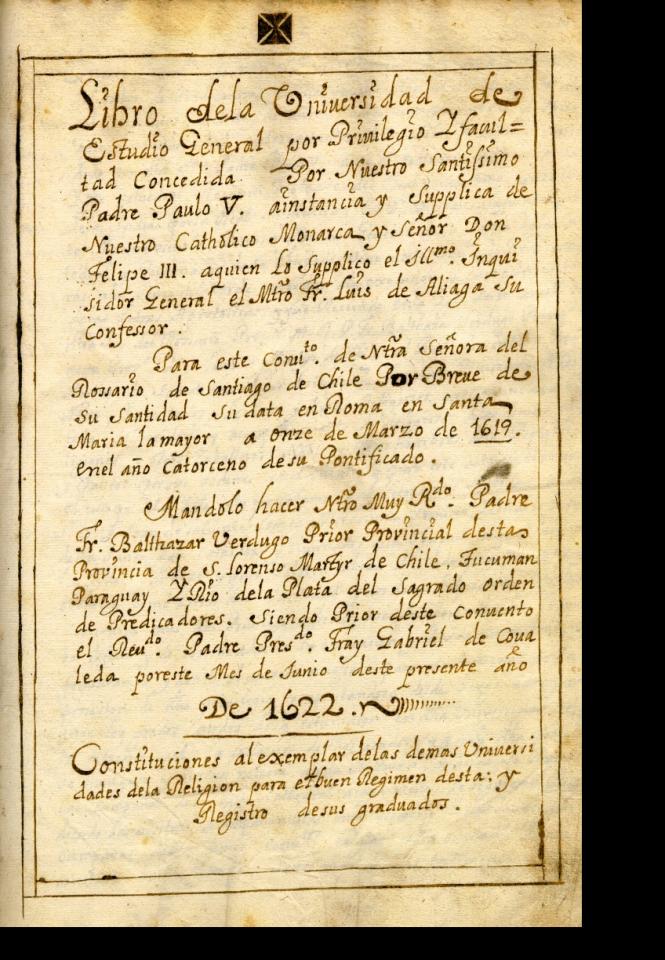 Libro dela Universidad de
Estudio General por Privilegio Y facul=
tad Concedida Por Nuestro Santissimo
Padre Paulo V. ainstancia y Supplica de
Nuestro Catholico Monarca y Señor Don
Felipe III. aquien Lo Supplico el Illmo. Inqui
sidor General el Mtro Fr. Luis de Aliaga Su
Confessor.
Para este Convto. de Ntra Señora del
Rossario de Santiago de Chile Por Breve de
Su Santidad Su data en Roma en Santa
Maria la mayor a onze de Marzo de 1619.
enel año Catorceno de su Pontificado.
Mandolo hacer Ntro Muy Rdo. Padre
Fr. Balthazar Verdugo Prior Provincial desta
Provincia de S. Lorenso Martyr de Chile, Tucuman
Paraguay Y Rio dela Plata del Sagrado orden
de Predicadores. Siendo Prior deste Convento
el Reudo. Padre Presdo. Fray Gabriel de Coua
leda poreste Mes de Junio deste presente año
De 1622.
Constituciones al exemplar delas demas Universi
dades dela Religion para el buen Regimen desta; y
Registro desus graduados.